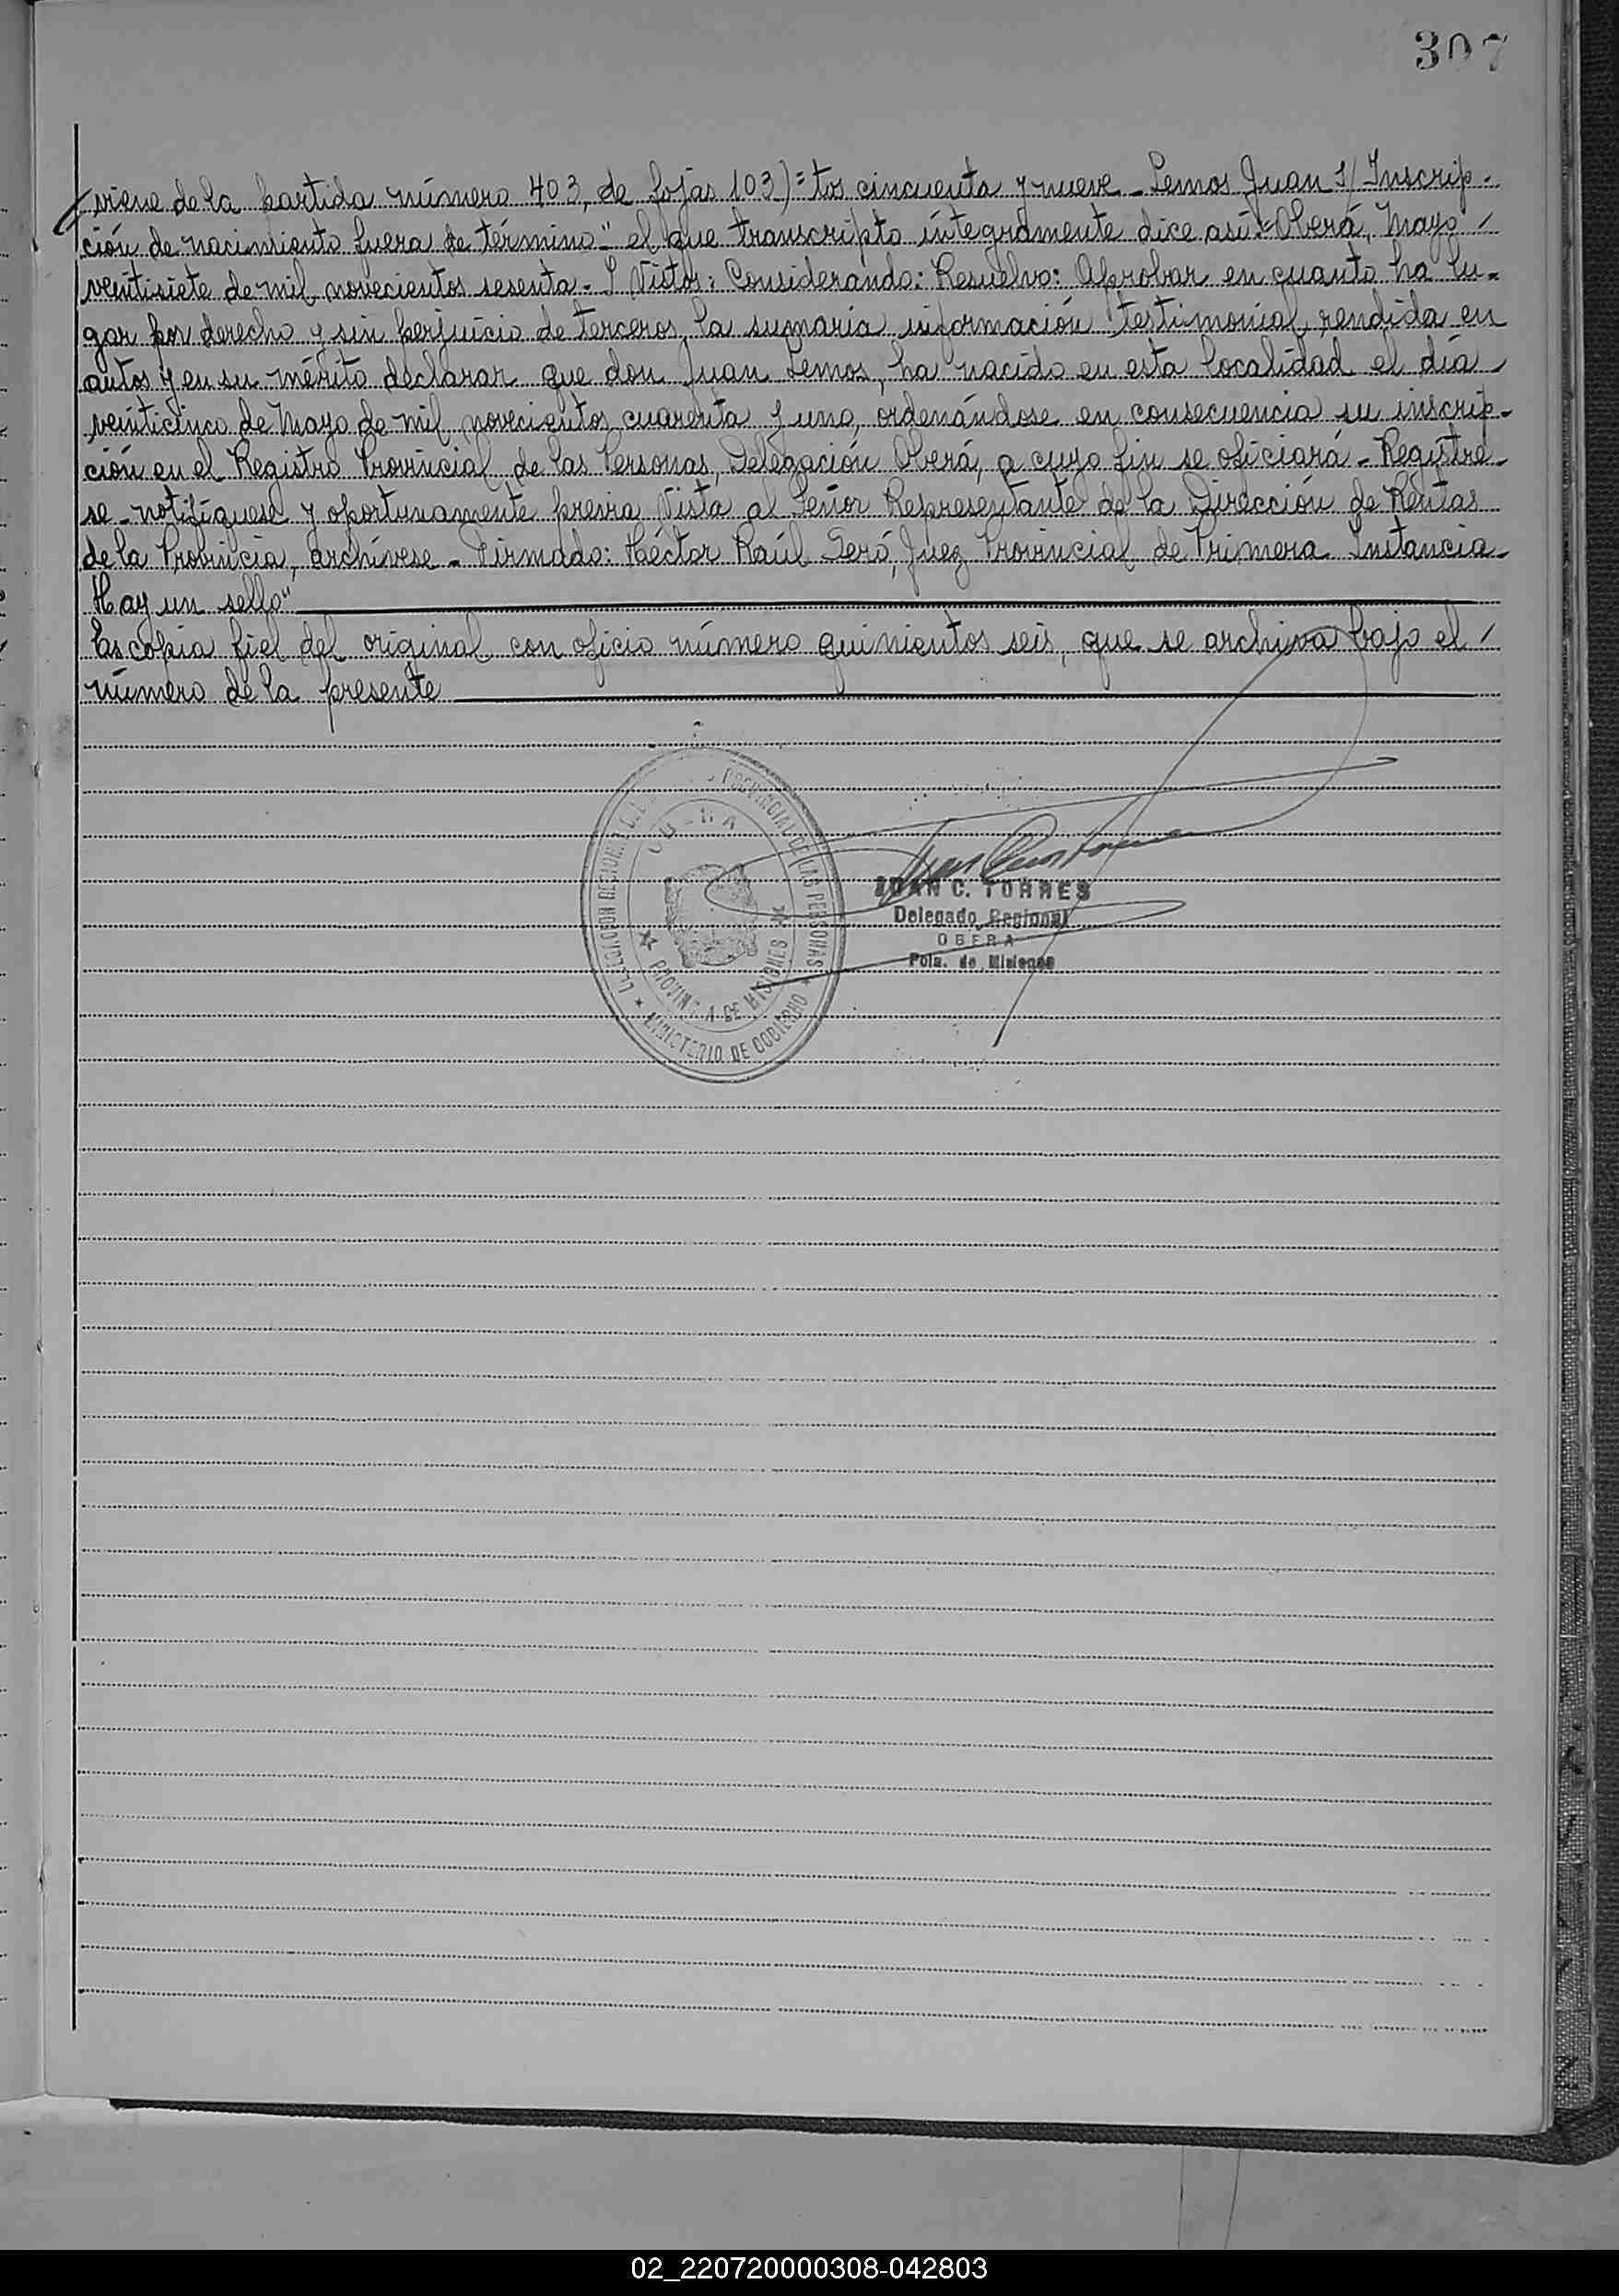 307
viene de la partida número 403, de fojas 103)= tos cincuenta y nueve - Lemos Juan s/ Inscrip-
ción de nacimiento fuera de término" el que transcripto íntegramente dice así: "Oberá, Mayo /
veintisiete de mil novecientos sesenta. Y Vistos: Considerando: Resuelvo: Aprobar en cuanto ha lu=
gar por derecho y sin perjuicio de terceros, la sumaria información testimonial, rendida en
autos y en su mérito declarar que don Juan Lemos, ha nacido en esta localidad el día
veinticinco de Mayo de mil novecientos cuarenta y uno, ordenándose en consecuencia su inscrip-
ción en el Registro Provincial de las Personas, Delegación Oberá, a cuyo fin se oficiará - Regístre-
se - notifíquese y oportunamente previa Vista al Señor Representante de la Dirección de Rentas
de la Provincia, archívese - Firmado: Héctor Raúl Seró, Juez Provincial de Primera Instancia -
Hay un sello"
Es copia fiel del original con oficio número quinientos seis, que se archiva bajo el /
número de la presente
PROVINCIAL DE LAS PERSONAS
PROVINCIA DE MISIONES
MINISTERIO DE GOBIERNO
JUAN C. TORRES
Delegado Regional
OBERA
Pcia. de Misiones
02_220720000308-042803